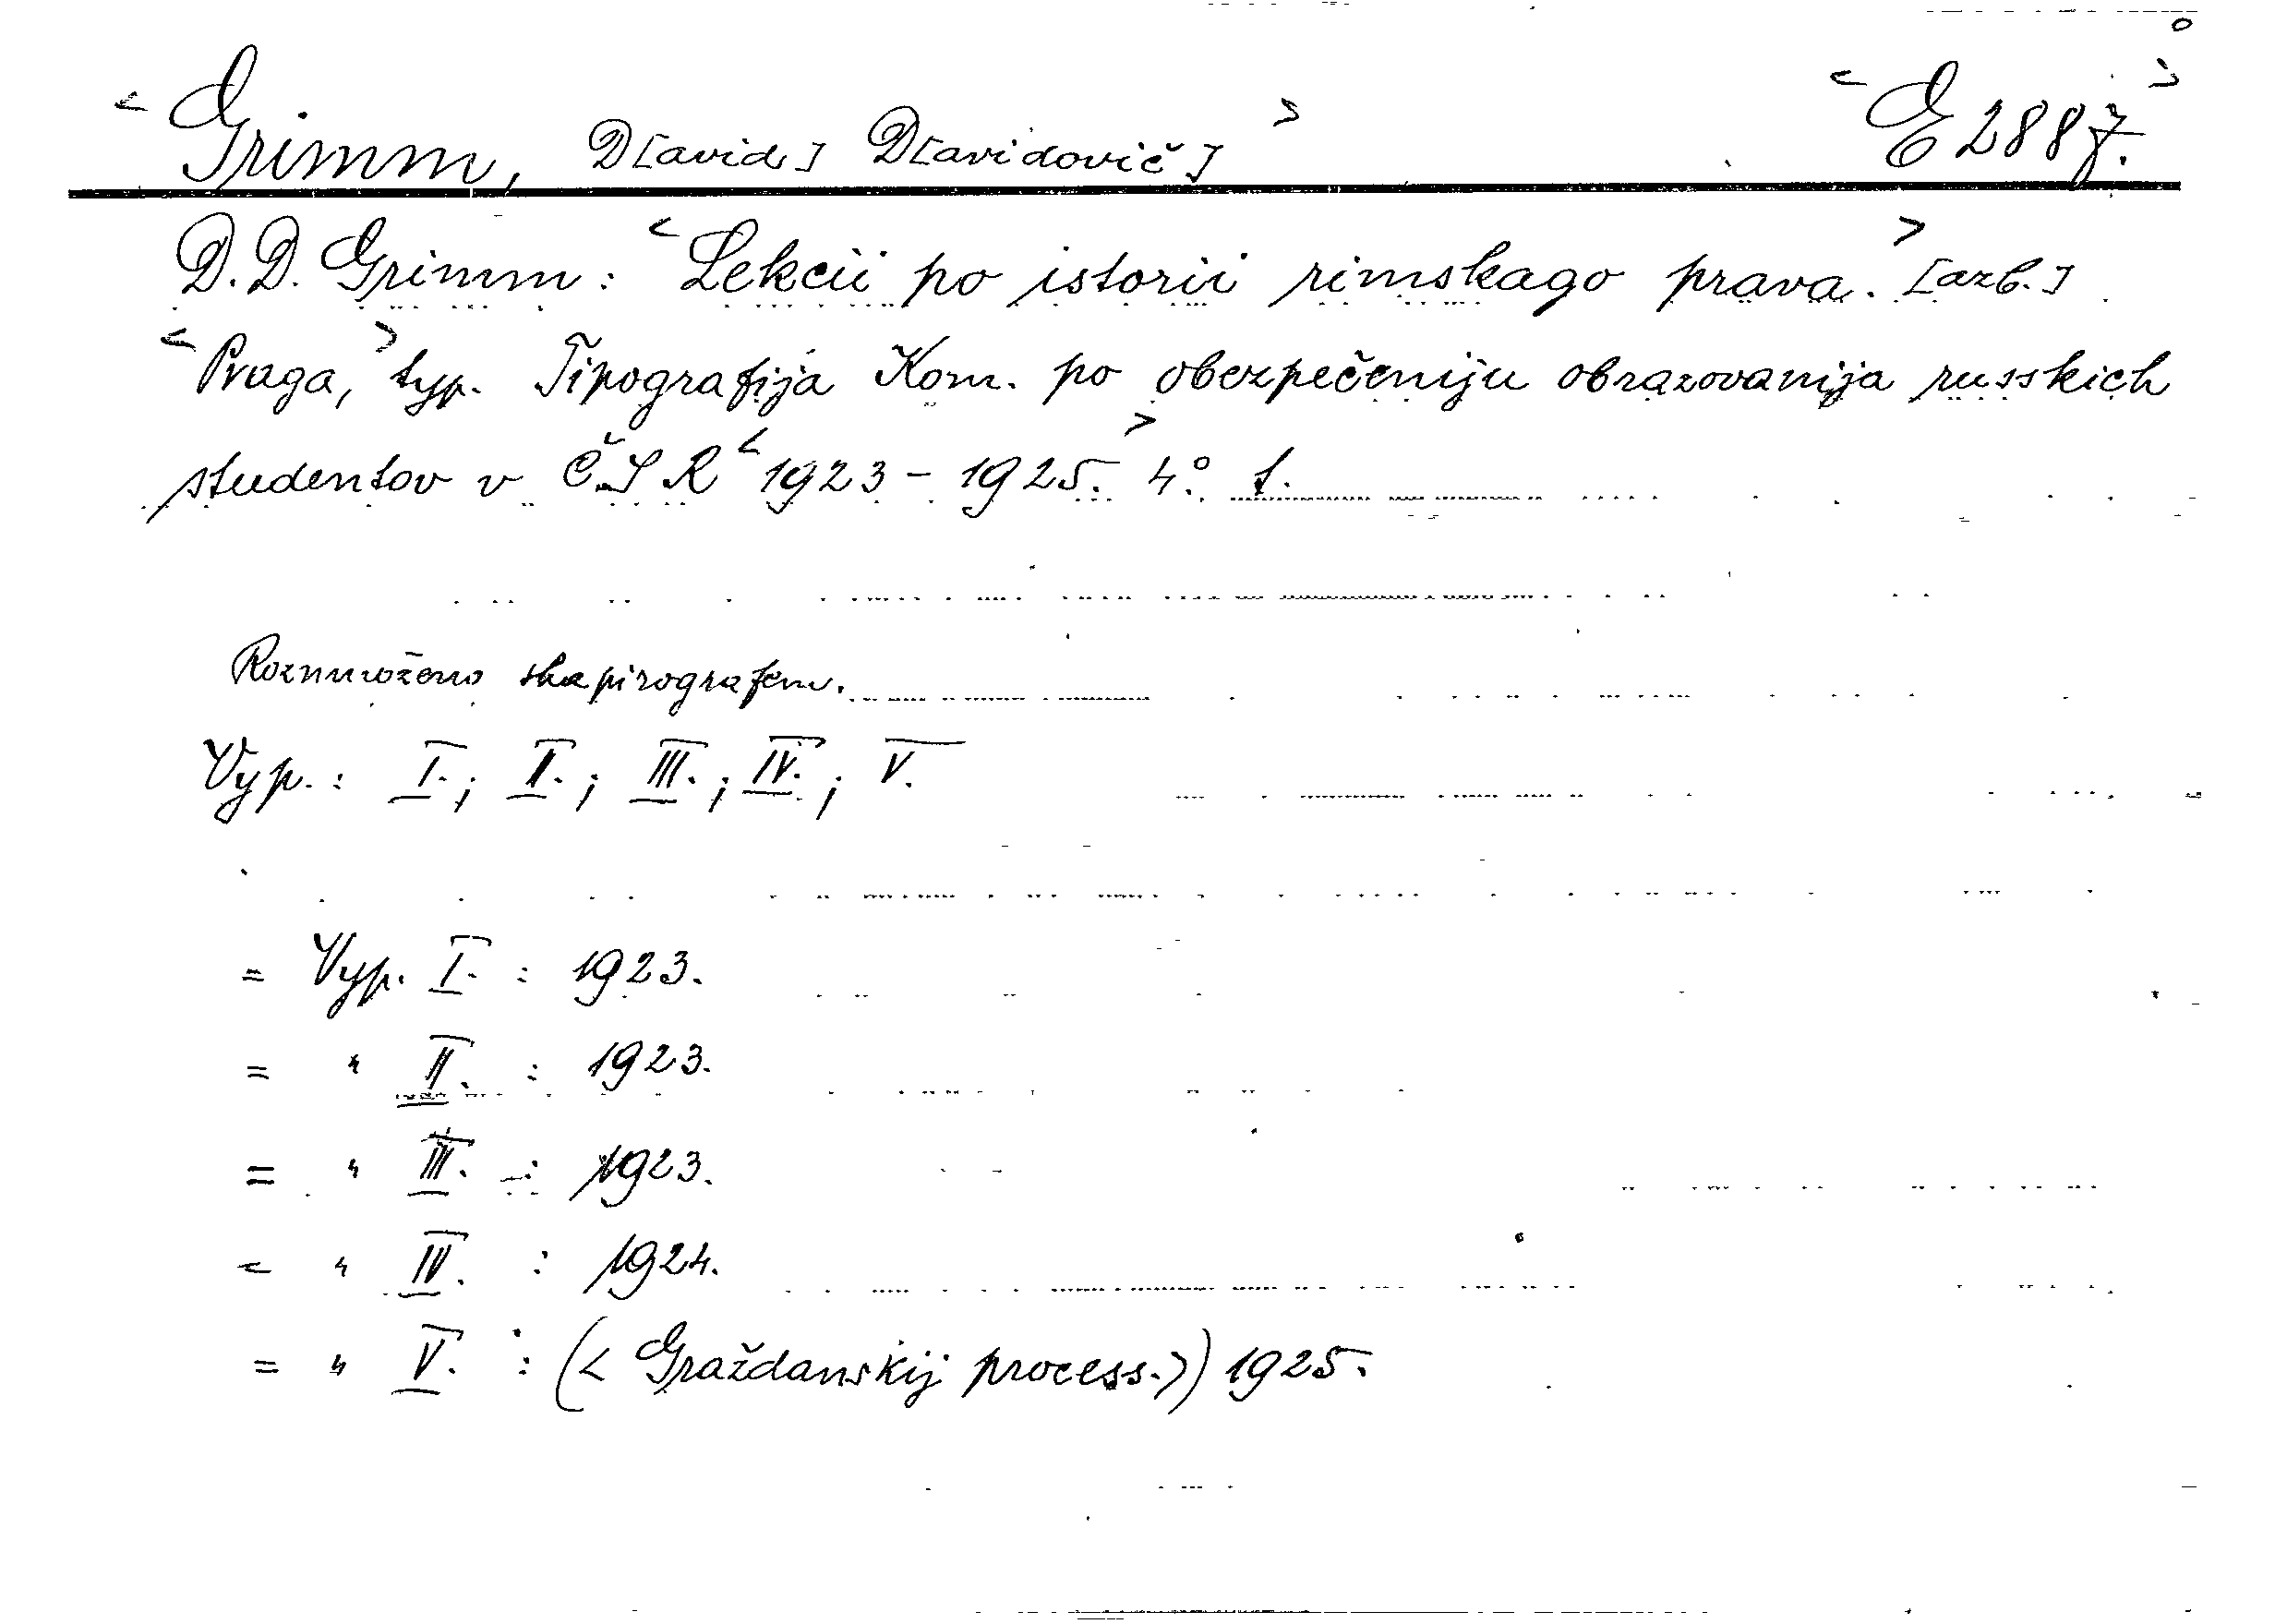 < Grimm, D[avid] D[avidovič] > < E 2887. >
D. D. Grimm: < Lekcii po istorii rimskago prava. > [azb.]
< Praga, > typ. Tipografija Kom. po obezpečeniju obrazovanija russkich
studentov v ČSR < 1923 - 1925. > 4° 1.
Rozmnoženo shapirografem.
Vyp.: I.; II.; III.; IV.; V.
= Vyp. I. : 1923.
= " II. : 1923.
= " III. : 1923.
= " IV. : 1924.
= " V. : (< Graždanskij process. >) 1925.